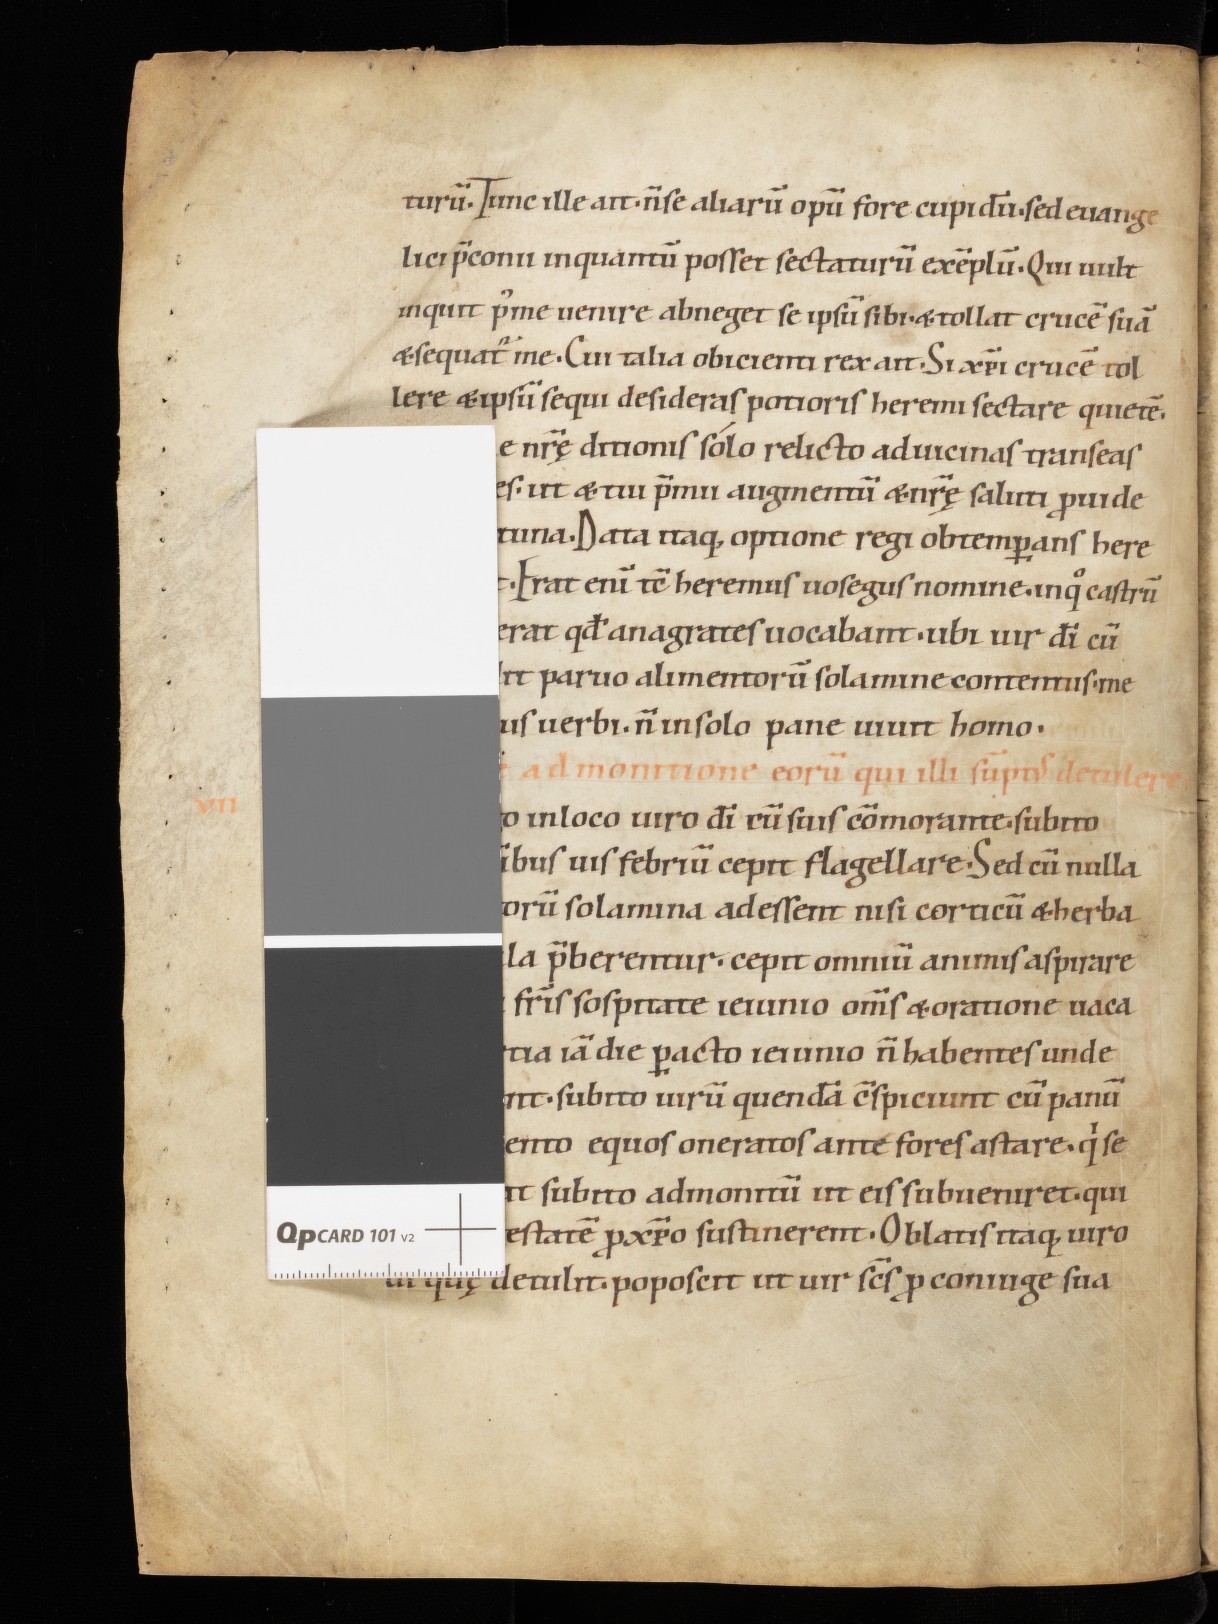 turū. Tunc ille ait. n̄ se aliarū opū fore cupidū. sed euange
lici p̄conii inquantū posset sectaturū exēplū. Qui uult
inquit p̄ me uenire abneget se ipsū sibi. & tollat crucē suā
& sequat᷑ me. Cui talia obicienti rex ait. Si xp̄i crucē tol
lere & ipsū sequi desideras potioris heremi sectare quietē.
e nr̄ę ditionis sólo relicto ad uicinas transeas
es. ut & tui p̄mii augmentū & nr̄ę saluti ꝓuide
tuna. Data itaq, optione regi obtemꝑans here
t. Erat enī tc̄ heremus uosegus nomine. inqͦ castrū
erat qđ anagrates uocabant. ubi uir dī cū
lit paruo alimentorū solamine contentus. me
us uerbi. n̄ in solo pane uiuit homo.
admonitione eorū qui illi sūptꝰ detulere
VII
o inloco uiro dī cū suis cōmorante. subito
ibus uis febriū cepit flagellare. Sed cū nulla
orū solamina adessent nisi corticū & herba
la p̄berentur. cepit omniū animis aspirare
fr̄is sospitate ieiunio om̄s & oratione uaca
tia iā die ꝑacto ieiunio n̄ habentes unde
nt. subito uirū quendā c̄spiciunt cū panū
ento equos oneratos ante fores astare. qͥ se
it subito admonitū ut eis subueniret. qui
estatē ꝓ xp̄o sustinerent. Oblatis itaq, uiro
dī quę detulit. poposcit ut uir sc̄s ꝓ coniuge sua
QpCARD 101 v2